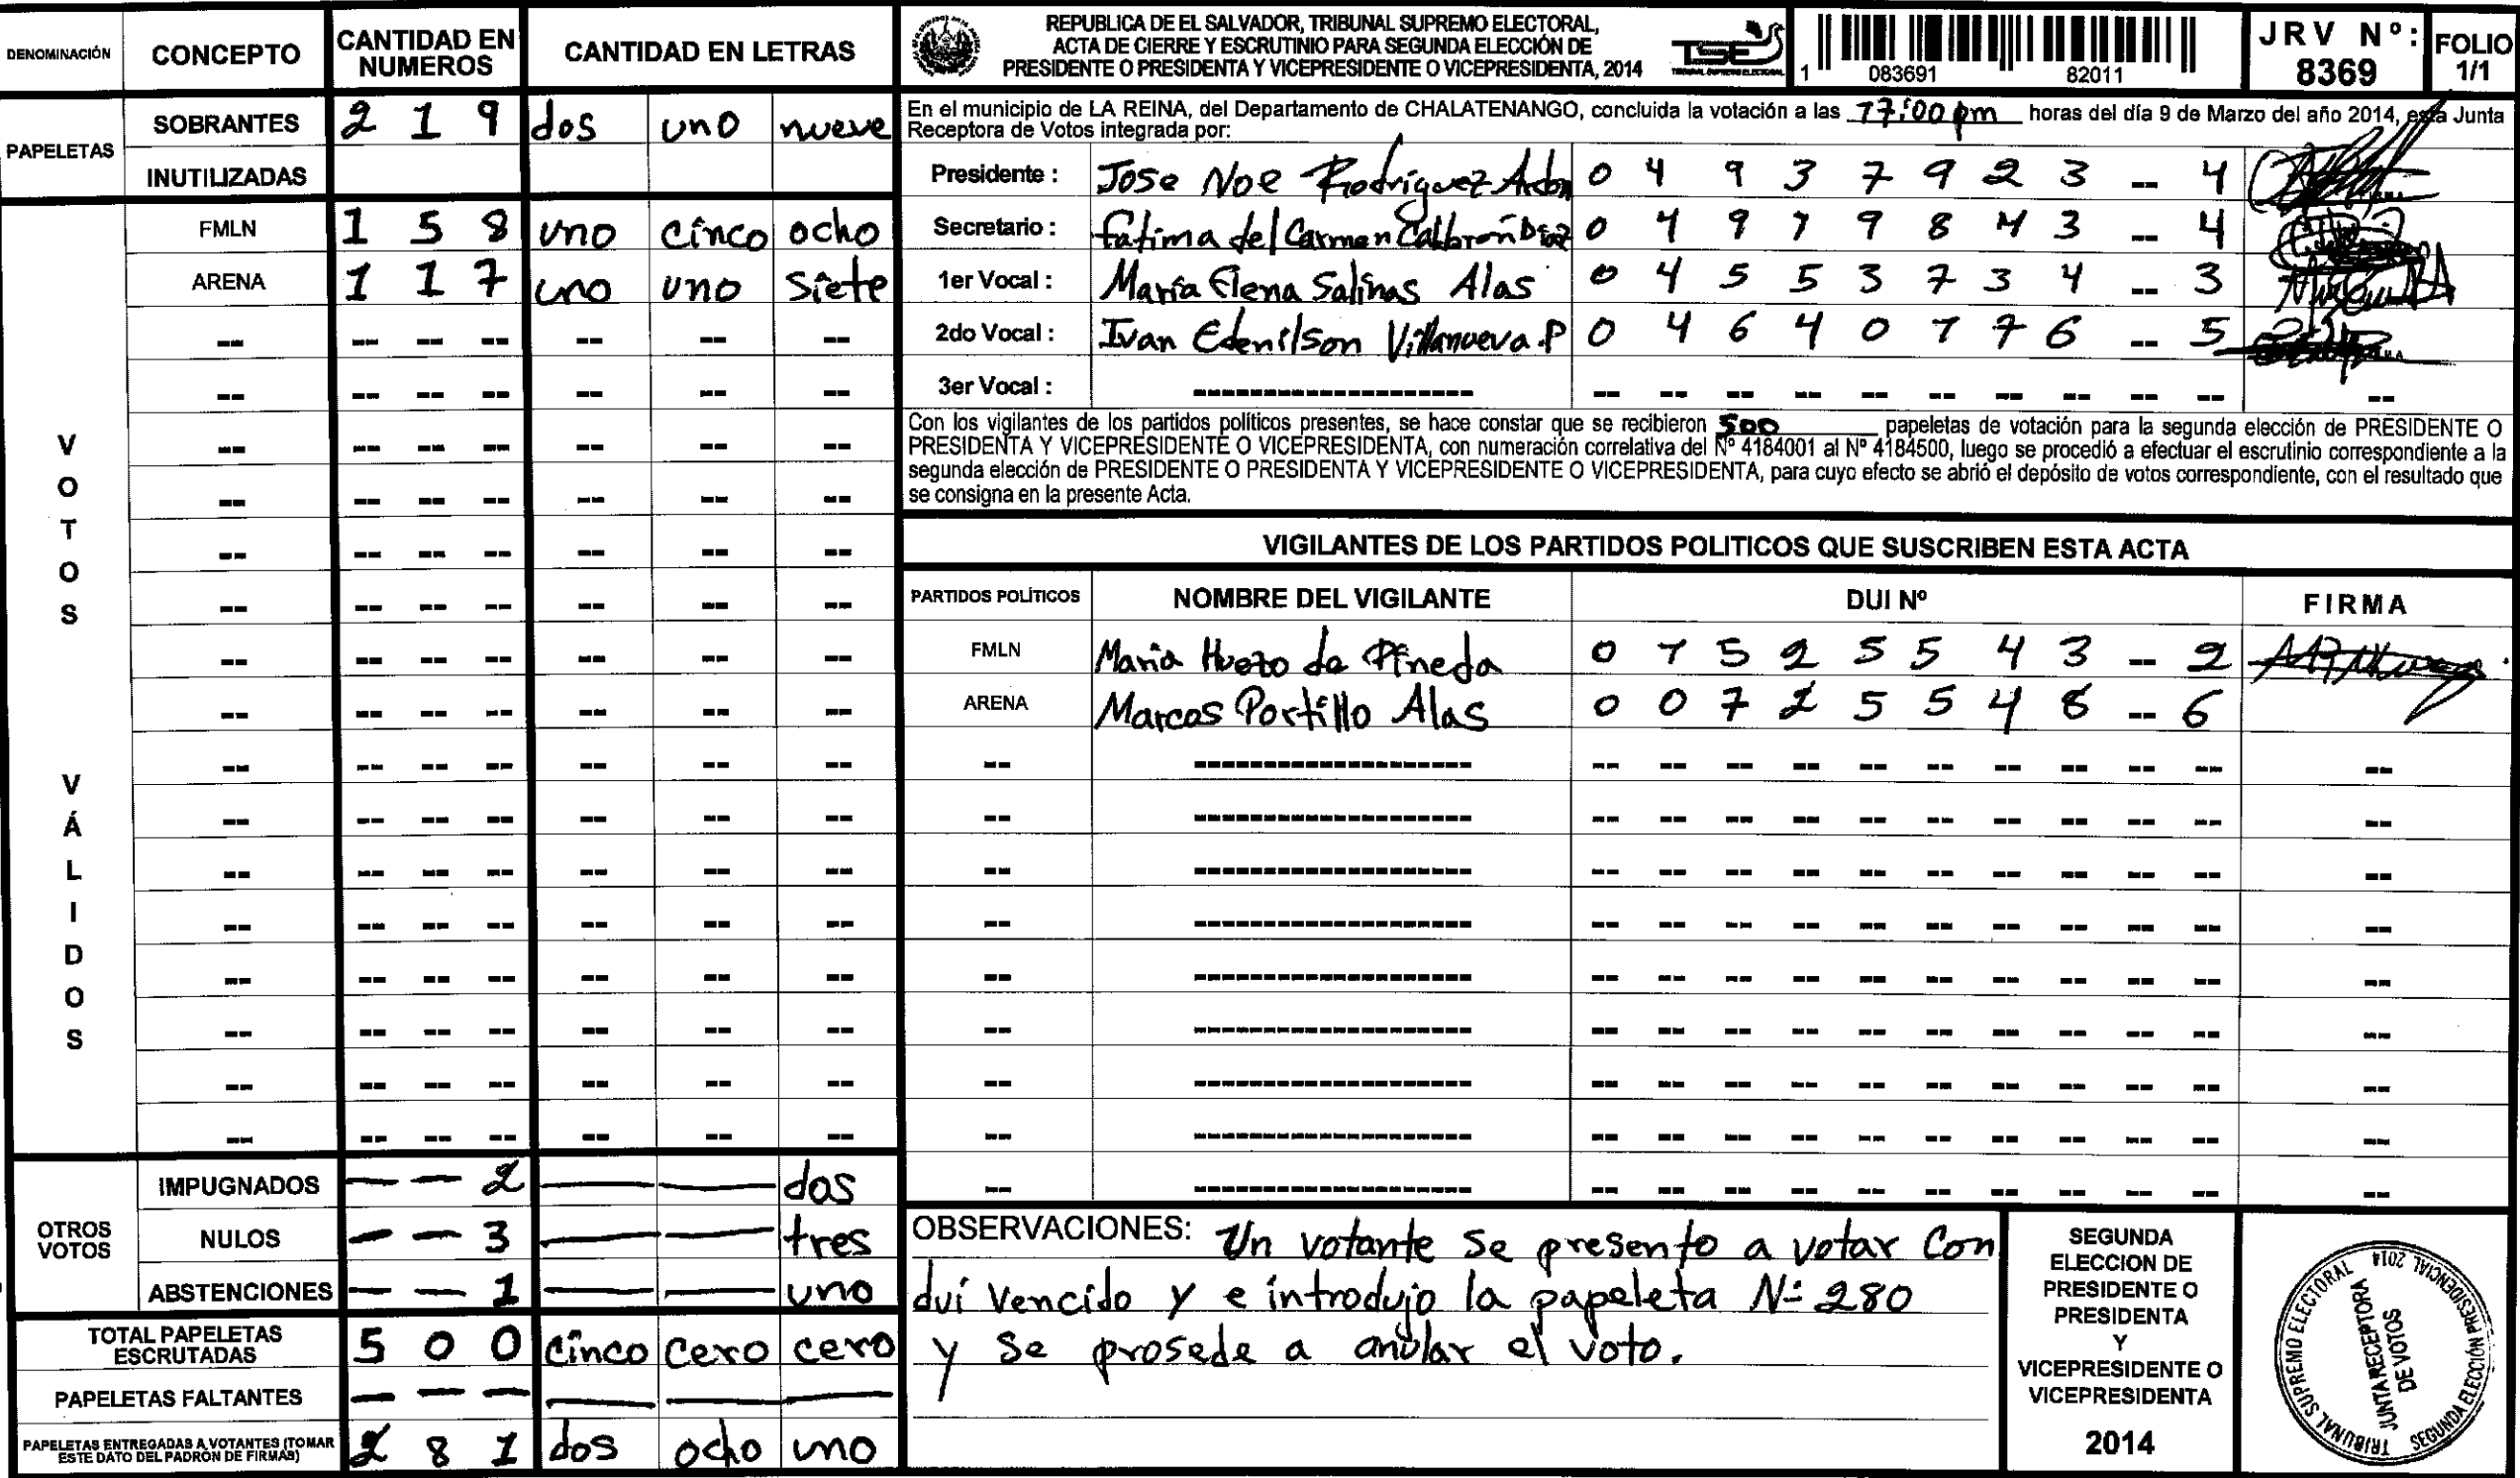 DENOMINACIÓN CONCEPTO CANTIDAD EN NUMEROS CANTIDAD EN LETRAS
PAPELETAS
SOBRANTES 2 1 9 dos uno nueve
INUTILIZADAS
VOTOS VÁLIDOS
FMLN 1 5 8 uno cinco ocho
ARENA 1 1 7 uno uno siete
OTROS VOTOS
IMPUGNADOS — — 2 — — dos
NULOS — — 3 — — tres
ABSTENCIONES — — 1 — — uno
TOTAL PAPELETAS ESCRUTADAS 5 0 0 cinco cero cero
PAPELETAS FALTANTES — — — — — —
PAPELETAS ENTREGADAS A VOTANTES (TOMAR ESTE DATO DEL PADRON DE FIRMAS) 2 8 1 dos ocho uno
REPUBLICA DE EL SALVADOR, TRIBUNAL SUPREMO ELECTORAL,
ACTA DE CIERRE Y ESCRUTINIO PARA SEGUNDA ELECCIÓN DE
PRESIDENTE O PRESIDENTA Y VICEPRESIDENTE O VICEPRESIDENTA, 2014
TSE
1 083691 82011
JRV Nº: 8369
FOLIO 1/1
En el municipio de LA REINA, del Departamento de CHALATENANGO, concluida la votación a las 17:00 pm horas del día 9 de Marzo del año 2014, esta Junta
Receptora de Votos integrada por:
Presidente : Jose Noe Rodriguez 0 4 9 3 7 9 2 3 -- 4
Secretario : fatima del Carmen 0 4 9 7 9 8 4 3 -- 4
1er Vocal : María Elena Salinas Alas 0 4 5 5 3 7 3 4 -- 3
2do Vocal : Ivan Edenilson Villanueva.P 0 4 6 4 0 7 7 6 -- 5
3er Vocal :
Con los vigilantes de los partidos políticos presentes, se hace constar que se recibieron 500 papeletas de votación para la segunda elección de PRESIDENTE O
PRESIDENTA Y VICEPRESIDENTE O VICEPRESIDENTA, con numeración correlativa del Nº 4184001 al Nº 4184500, luego se procedió a efectuar el escrutinio correspondiente a la
segunda elección de PRESIDENTE O PRESIDENTA Y VICEPRESIDENTE O VICEPRESIDENTA, para cuyo efecto se abrió el depósito de votos correspondiente, con el resultado que
se consigna en la presente Acta.
VIGILANTES DE LOS PARTIDOS POLITICOS QUE SUSCRIBEN ESTA ACTA
PARTIDOS POLÍTICOS NOMBRE DEL VIGILANTE DUI Nº FIRMA
FMLN Maria Huezo de Pineda 0 7 5 2 5 5 4 3 -- 2
ARENA Marcos Portillo Alas 0 0 7 2 5 5 4 8 -- 6
OBSERVACIONES: Un votante se presento a votar Con
dui Vencido y e introdujo la papeleta Nº 280
y se prosede a anular el voto.
SEGUNDA
ELECCION DE
PRESIDENTE O
PRESIDENTA
Y
VICEPRESIDENTE O
VICEPRESIDENTA
2014
TRIBUNAL SUPREMO ELECTORAL
JUNTA RECEPTORA
DE VOTOS
SEGUNDA ELECCIÓN PRESIDENCIAL 2014